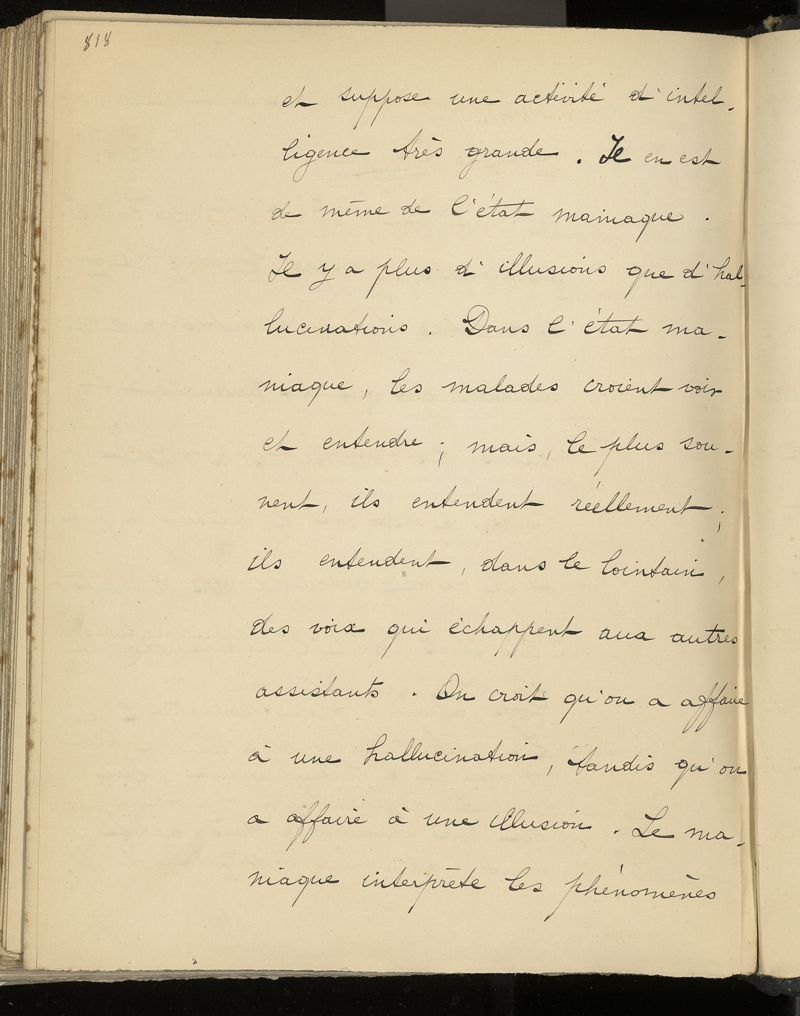 818
et suppose une activité d'intel-
ligence très grande. Il en est
de même de l'état mainaque.
Il y a plus d'illusions que d'hal-
lucinations. Dans l'état ma-
niaque, les malades croient voir
et entendre ; mais, le plus sou-
vent, ils entendent réellement ;
ils entendent, dans le lointain,
des voix qui échappent aux autres
assistants. On croit qu'on a affaire
à une hallucination, tandis qu'on
a affaire à une illusion. Le ma-
niaque interprète les phénomènes